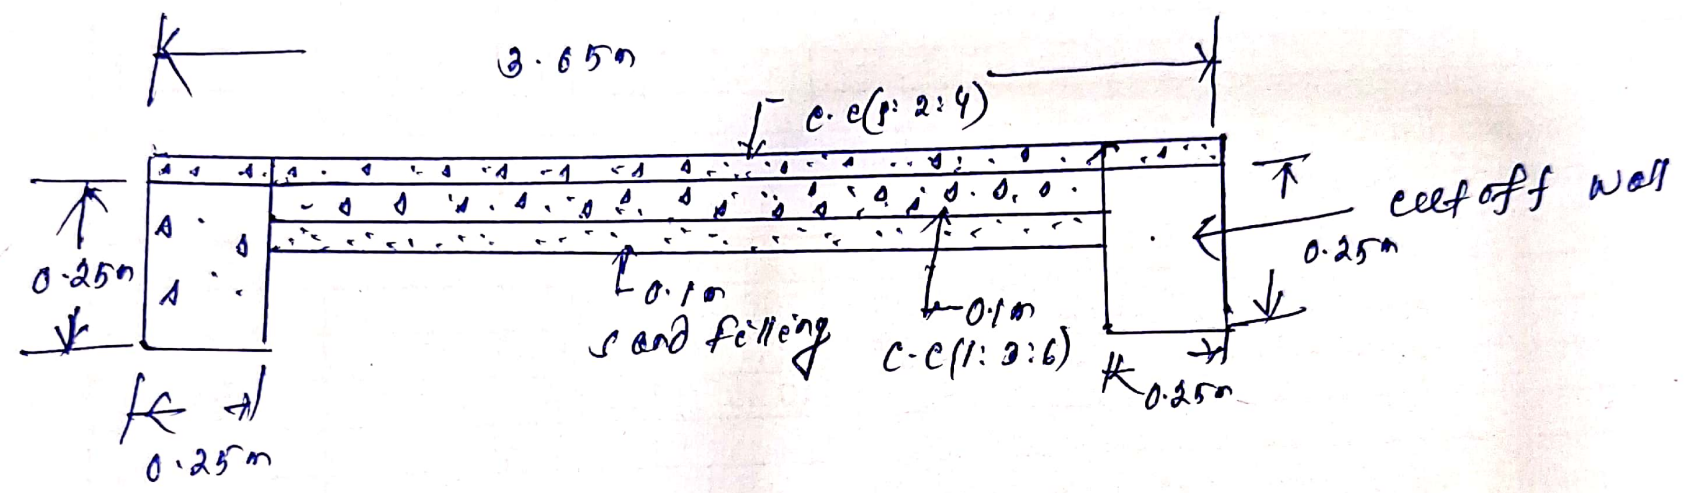 3.65m
C.C(1:2:4)
cutoff wall
0.25m
0.25m
0.1m
sand filling
0.1m
C.C(1:3:6)
0.25m
0.25m